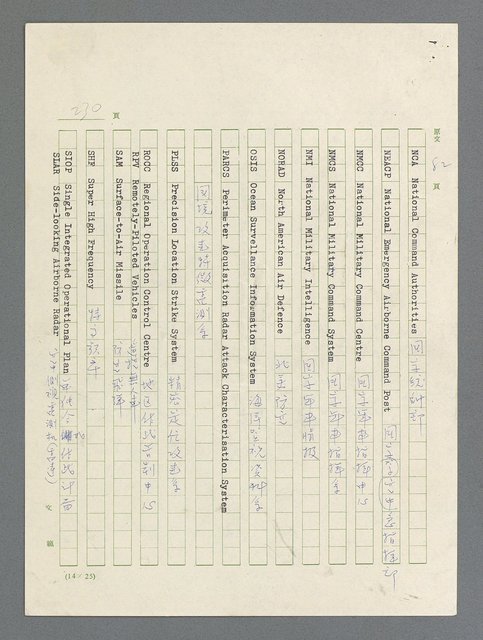 原文 82 頁
NCA National Command Authorities 国家統帥部
NEACP National Emergency Airborne Command Post
NMCC National Military Command Centre 国家軍事指揮中心
NMCS National Military Command System 国家軍事指揮系
NMI National Military Intelligence 国家軍事情报
NORAD North American Air Defence 北美防空
OSIS Ocean Surveillance Information System 海洋监視資料系
PARCS Perimeter Acquisition Radar Attack Characterisation System
PLSS Precision Location Strike System 精密定位攻击系
ROCC Regional Operation Control Centre 地区作战管制中心
RPV Remotely-Piloted Vehicles
SAM Surface-to-Air Missile 防空飛弹
SHF Super High Frequency 特高頻率
SIOP Single Integrated Operational Plan
SLAR Side-looking Airborne Radar
230 頁
文稿
(14／25)